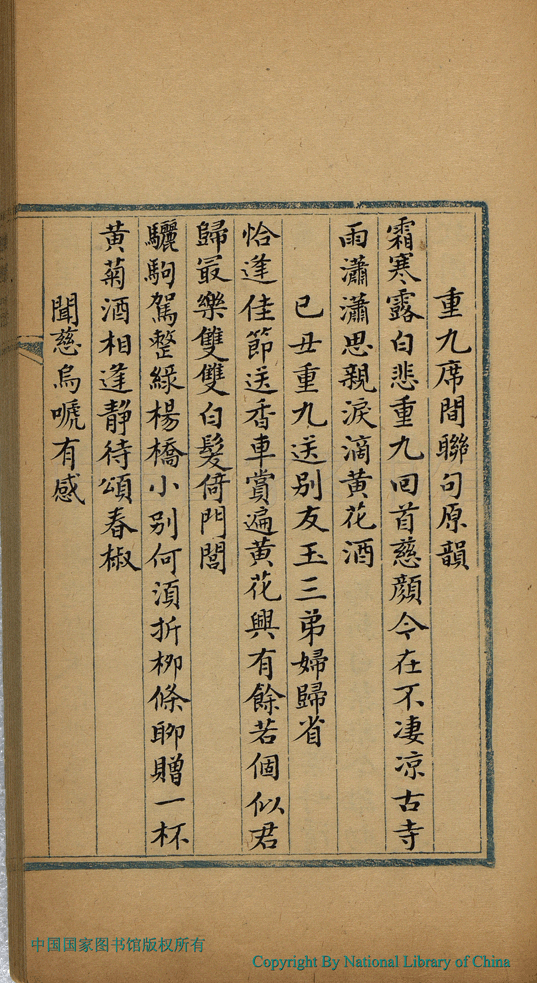 重九席間聯句原韻
霜寒露白悲重九回首慈顏今在不凄凉古寺
雨瀟瀟思親淚滴黃花酒
己丑重九送别友玉三弟婦歸省
恰逢佳節送香車賞遍黃花興有餘若個似君
歸最樂雙雙白髮倚門閭
驪駒駕整緑楊橋小别何須折柳條聊贈一杯
黃菊酒相逢静待頌春椒
聞慈烏嗁有感
中国国家图书馆版权所有
Copyright By National Library of China